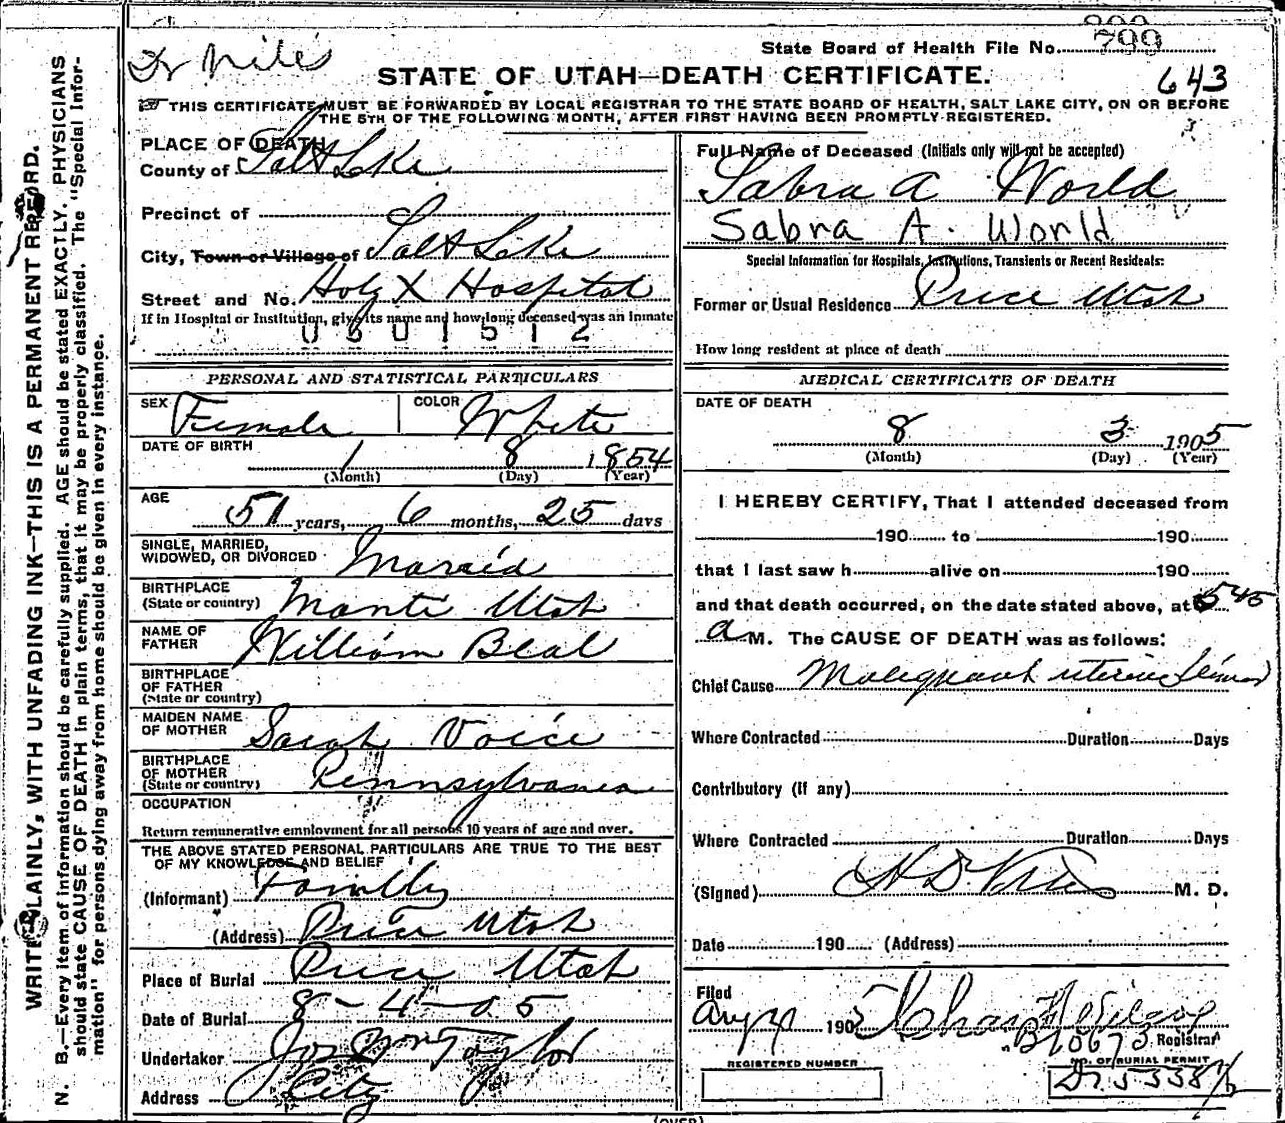 WRITE PLAINLY, WITH UNFADING INK—THIS IS A PERMANENT RECORD.
N. B.—Every item of information should be carefully supplied. AGE should be stated EXACTLY. PHYSICIANS
should state CAUSE OF DEATH in plain terms, that it may be properly classified. The "Special Infor-
mation" for persons dying away from home should be given in every instance.
State Board of Health File No. 799
STATE OF UTAH—DEATH CERTIFICATE.
643
THIS CERTIFICATE MUST BE FORWARDED BY LOCAL REGISTRAR TO THE STATE BOARD OF HEALTH, SALT LAKE CITY, ON OR BEFORE
THE 5TH OF THE FOLLOWING MONTH, AFTER FIRST HAVING BEEN PROMPTLY REGISTERED.
PLACE OF DEATH
County of Salt Lake
Precinct of
City, Town or Village of Salt Lake
Street and No. Holy X Hospital
If in Hospital or Institution, give its name and how long deceased was an inmate
0501512
PERSONAL AND STATISTICAL PARTICULARS
SEX Female COLOR White
DATE OF BIRTH
1 8 1854
(Month) (Day) (Year)
AGE
51 years, 6 months, 25 days
SINGLE, MARRIED,
WIDOWED, OR DIVORCED Married
BIRTHPLACE
(State or country) Manti Utah
NAME OF
FATHER William Beal
BIRTHPLACE
OF FATHER
(State or country)
MAIDEN NAME
OF MOTHER Sarah Voice
BIRTHPLACE
OF MOTHER
(State or country) Pennsylvania
OCCUPATION
Return remunerative employment for all persons 10 years of age and over.
THE ABOVE STATED PERSONAL PARTICULARS ARE TRUE TO THE BEST
OF MY KNOWLEDGE AND BELIEF
(Informant) Family
(Address) Price Utah
Place of Burial Price Utah
Date of Burial 8-4-05
Undertaker Jos Wm Taylor
Address City
Full Name of Deceased (Initials only will not be accepted)
Sabra A World
Sabra A. World
Special Information for Hospitals, Institutions, Transients or Recent Residents:
Former or Usual Residence Price Utah
How long resident at place of death
MEDICAL CERTIFICATE OF DEATH
DATE OF DEATH
8 3 1905
(Month) (Day) (Year)
I HEREBY CERTIFY, That I attended deceased from
190 to 190
that I last saw h alive on 190
and that death occurred, on the date stated above, at 545
a M. The CAUSE OF DEATH was as follows:
Chief Cause Malignant uterine
Where Contracted Duration Days
Contributory (if any)
Where Contracted Duration Days
(Signed) M. D.
Date 190 (Address)
Filed
Aug 1905
Registrar
B10673
REGISTERED NUMBER
NO. OF BURIAL PERMIT
(OVER)